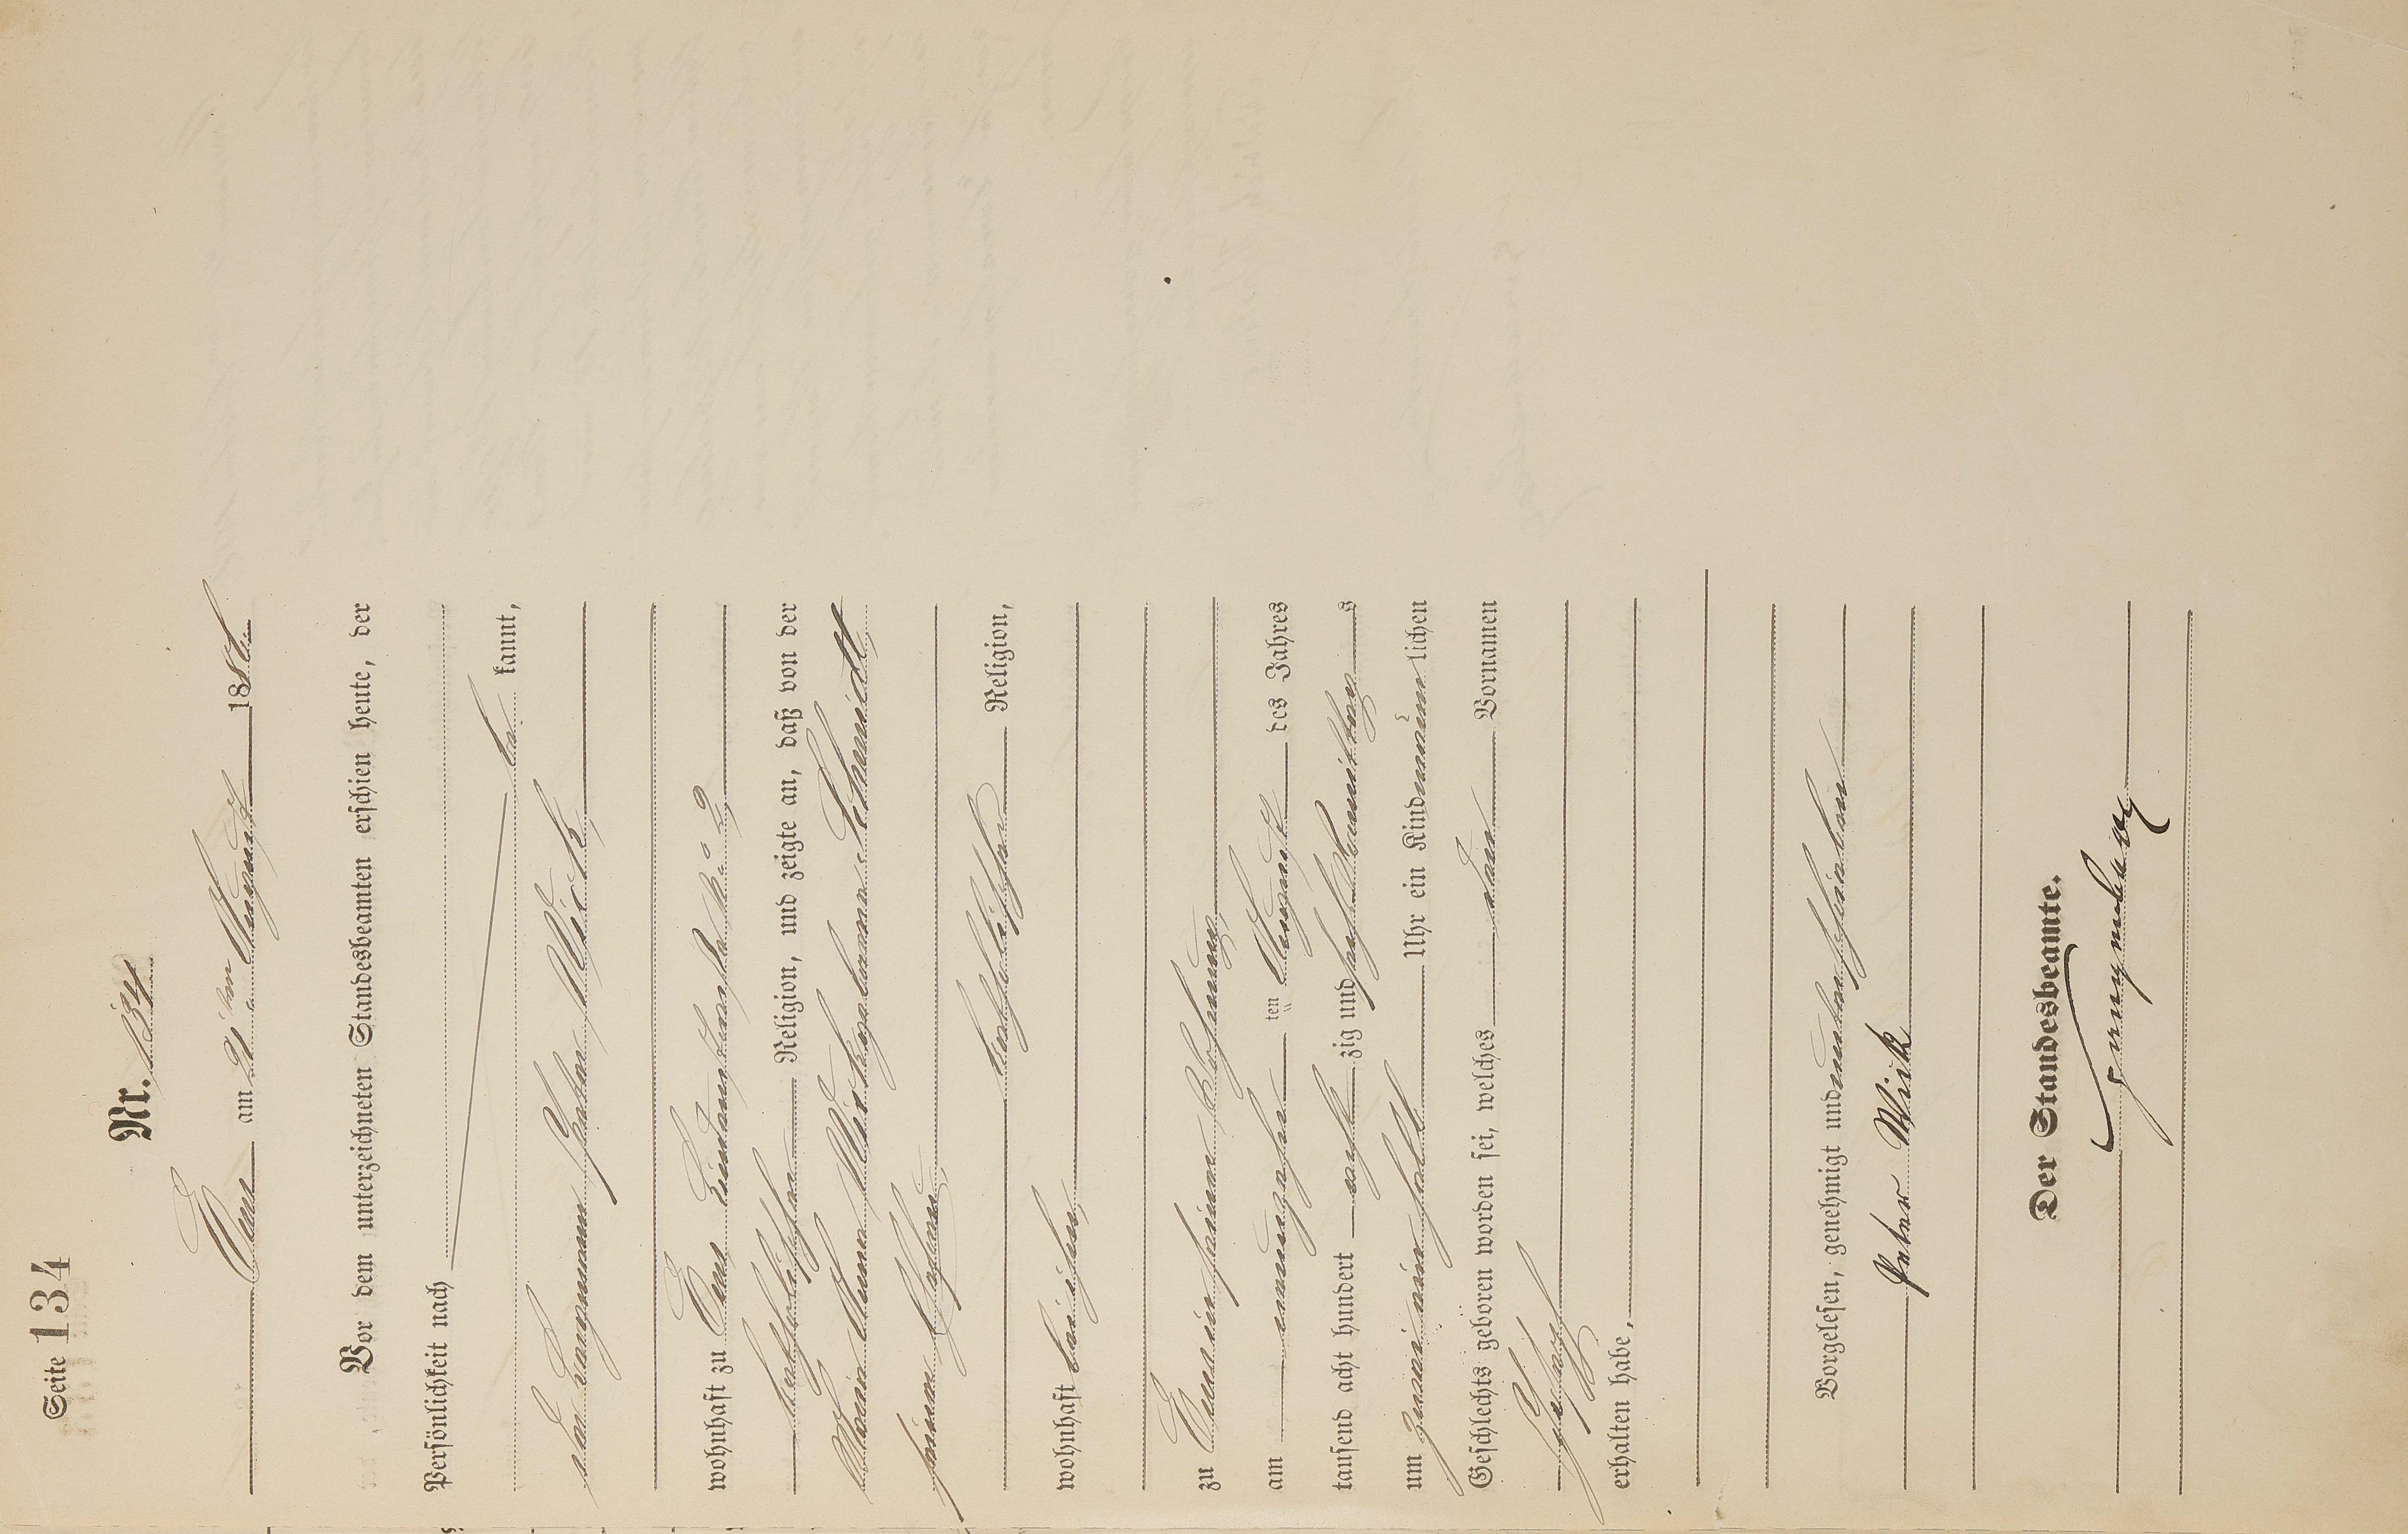 Seite 134
Nr. 134
Ems am 21ten August 1886
Vor dem unterzeichneten Standesbeamten erschien heute, der
Persönlichkeit nach
be kannt,
der Bergmann Peter Wirth,
wohnhaft zu Ems Lindenbach No 2,
katholischer Religion, und zeigte an, daß von der
Maria Anna Wirth geborenen Schmidt,
seiner Ehefrau,
katholischer Religion,
wohnhaft bei ihm,
zu Ems in seiner Wohnung,
am neunzehn ten August des Jahres
tausend acht hundert acht zig und sechs Vormittags
um zwei ein halb Uhr ein Kind männ lichen
Geschlechts geboren worden sei, welches den Vornamen
Joseph
erhalten habe,
Vorgelesen, genehmigt und unterschrieben
Peter Wirth
Der Standesbeamte.